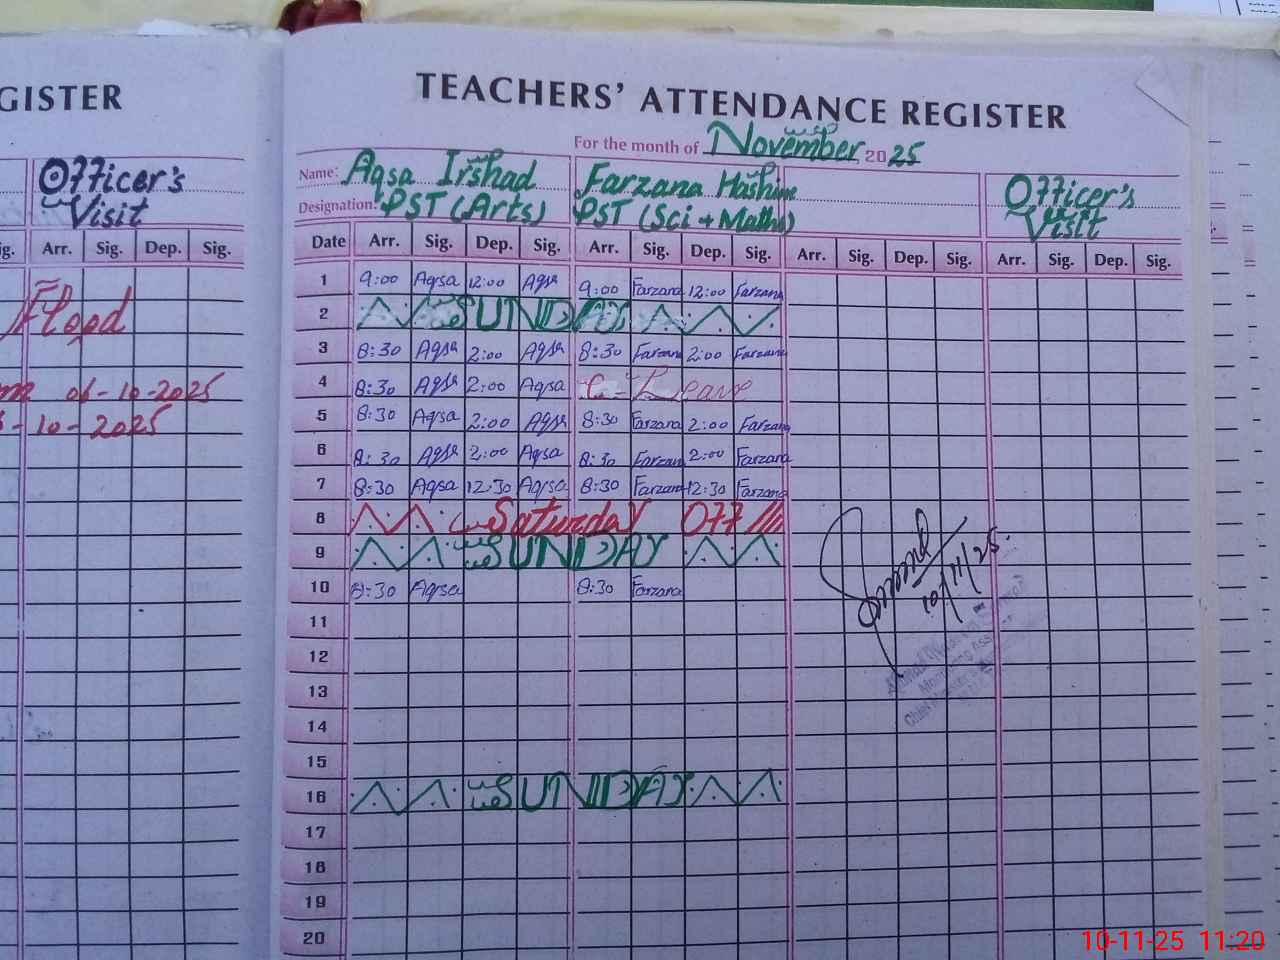 GISTER
Officer's
Visit
Arr. Sig. Dep. Sig.
Flood
06-10-2025
-10-2025
TEACHERS' ATTENDANCE REGISTER
For the month of November 2025
Name: Aqsa Irshad Farzana Hashim
Designation: PST (Arts) PST (Sci + Maths)
Officer's
Visit
Date Arr. Sig. Dep. Sig. Arr. Sig. Dep. Sig. Arr. Sig. Dep. Sig. Arr. Sig. Dep. Sig.
1 9:00 Aqsa 12:00 Aqsa 9:00 Farzana 12:00 Farzana
2 SUNDAY
3 8:30 Aqsa 2:00 Aqsa 8:30 Farzana 2:00 Farzana
4 8:30 Aqsa 2:00 Aqsa C-Leave
5 8:30 Aqsa 2:00 Aqsa 8:30 Farzana 2:00 Farzana
6 8:30 Aqsa 2:00 Aqsa 8:30 Farzana 2:00 Farzana
7 8:30 Aqsa 12:30 Aqsa 8:30 Farzana 12:30 Farzana
8 Saturday Off
9 SUNDAY
10 8:30 Aqsa 8:30 Farzana
10/11/25
11
12
Monitoring
13
Chief
14
15
16 SUNDAY
17
18
19
20
10-11-25 11:20